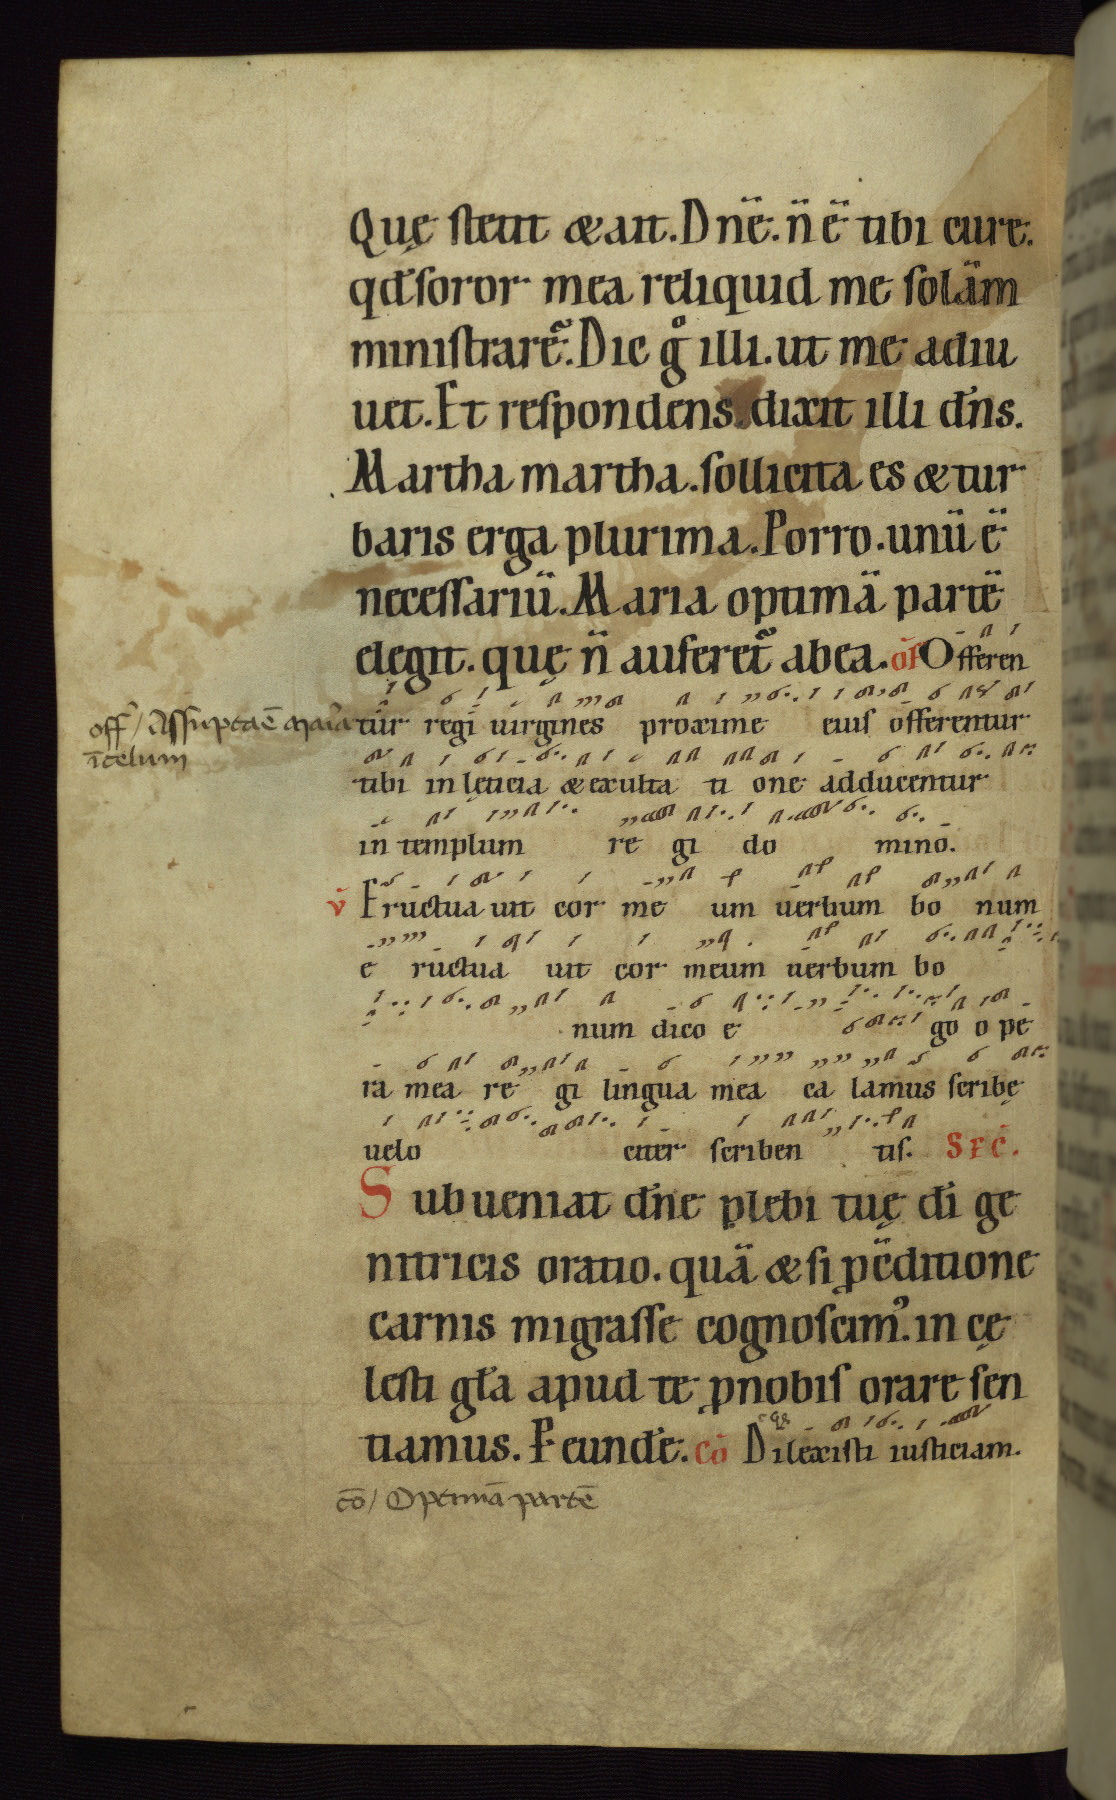 Quę stetit & ait. Dn̄e. n̄ ē tibi cure.
qđ soror mea reliquid me solā̈m
ministrare᷑. Dic gͦ illi. ut me adiu
uet. Et respondens. dixit illi dn̄s.
Martha martha. sollicita es & tur
baris erga plurima. Porro. unū ē
necessariū. Maria optimā partē
elegit. quę n̄ auferet᷑ abea. of̄ Offeren
tur regi uirgines proxime eius offerentur
tibi in lęticia & exulta ti one adducentur
in templum re gi do mino.
v̄ Eructua uit cor me um uerbum bo num
e ructua uit cor meum uerbum bo
num dico e go o pe
ra mea re gi lingua mea ca lamus scribę
uelo citer scriben tis. SEC̄.
Subueniat dn̄e plebi tuę dī ge
nitricis oratio. quā & si ꝓ c̄ditione
carnis migrasse cognoscimꝰ. in cę
lesti gl̄a apud te ꝓ nobis orare sen
tiamus. P eundē. cō Dilexisti iusticiam.
off̄ / Assūpta ē maria
ī celum
cō / Optimā partē